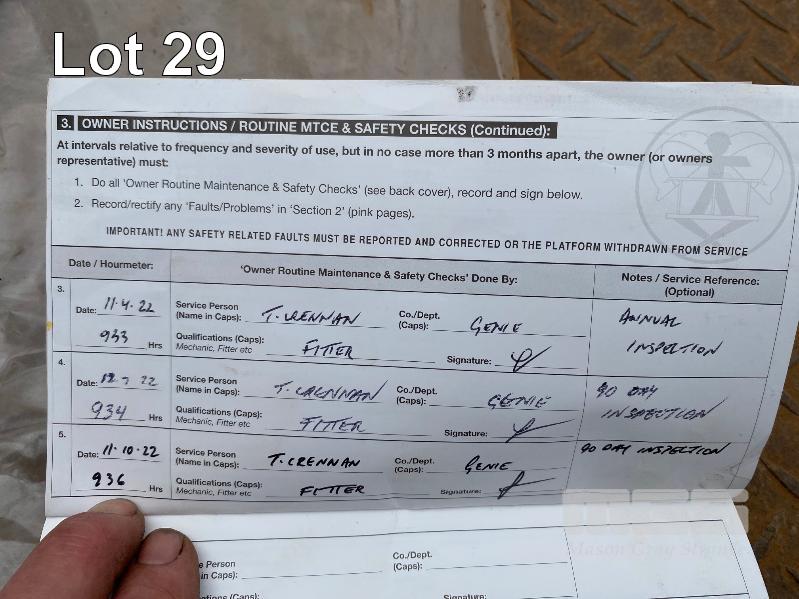 Lot 29
3. OWNER INSTRUCTIONS / ROUTINE MTCE & SAFETY CHECKS (Continued):
At intervals relative to frequency and severity of use, but in no case more than 3 months apart, the owner (or owners
representative) must:
1. Do all 'Owner Routine Maintenance & Safety Checks' (see back cover), record and sign below.
2. Record/rectify any 'Faults/Problems' in 'Section 2' (pink pages).
IMPORTANT! ANY SAFETY RELATED FAULTS MUST BE REPORTED AND CORRECTED OR THE PLATFORM WITHDRAWN FROM SERVICE
Date / Hourmeter: 'Owner Routine Maintenance & Safety Checks' Done By: Notes / Service Reference:
(Optional)
3.
Date: 11.4.22 Service Person T. CRENNAN Co./Dept. GENIE ANNUAL
(Name in Caps): (Caps):
933 Hrs Qualifications (Caps): FITTER Signature: INSPECTION
Mechanic, Fitter etc
4.
Date: 12.7.22 Service Person T. CRENNAN Co./Dept. GENIE 90 DAY
(Name in Caps): (Caps):
934 Hrs Qualifications (Caps): FITTER Signature: INSPECTION
Mechanic, Fitter etc
5.
Date: 11.10.22 Service Person T. CRENNAN Co./Dept. GENIE 90 DAY INSPECTION
(Name in Caps): (Caps):
936 Hrs Qualifications (Caps): FITTER Signature:
Mechanic, Fitter etc
Person Co./Dept.
in Caps): (Caps):
(Caps): Signature:
Mason Gray